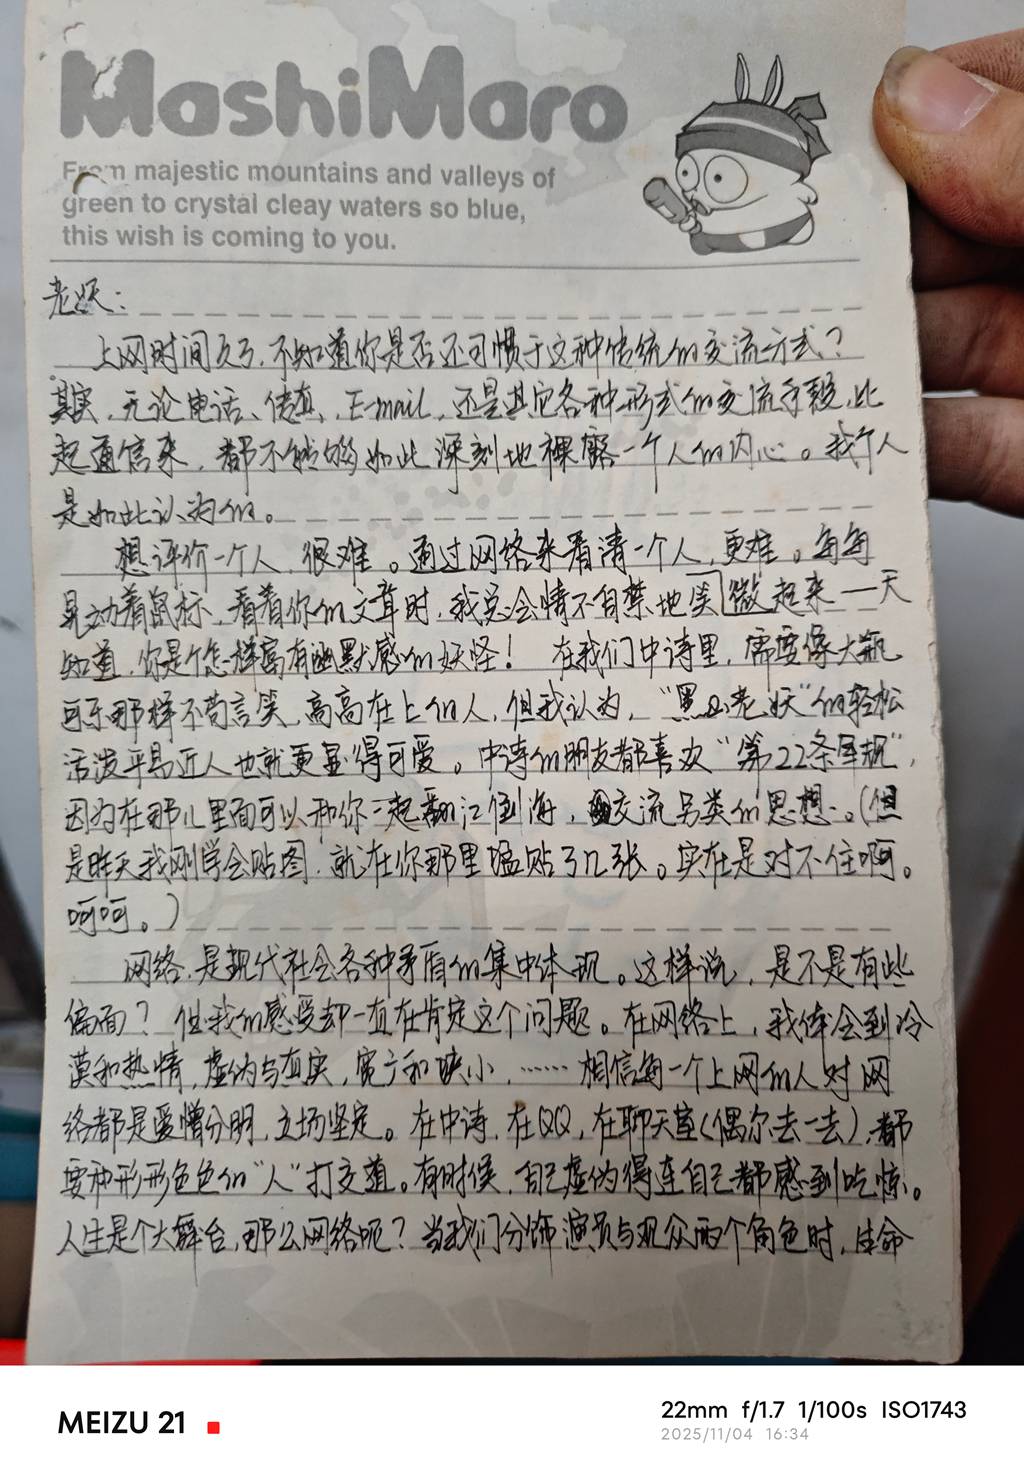 MashiMaro
From majestic mountains and valleys of
green to crystal cleay waters so blue,
this wish is coming to you.
老妖：
上网时间久了，不知道你是否还习惯于这种传统的交流方式？
其实，无论电话、传真、E-mail，还是其它各种形式的交流手段，比
起通信来，都不能够如此深刻地裸露一个人的内心。我个人
是如此认为的。
想评价一个人，很难。通过网络来看清一个人，更难。每每
晃动着鼠标，看着你的文章时，我总会情不自禁地笑微起来——天
知道，你是个怎样富有幽默感的妖怪！ 在我们中诗里，需要像大瓶
可乐那样不苟言笑，高高在上的人，但我认为，“黑山老妖”的轻松
活泼平易近人也就更显得可爱。中诗的朋友都喜欢“第22条军规”，
因为在那儿里面可以和你一起翻江倒海，交流另类的思想。（但
是昨天我刚学会贴图，就在你那里猛贴了几张。实在是对不住啊。
呵呵。）
网络，是现代社会各种矛盾的集中体现。这样说，是不是有些
偏面？但我的感受却一直在肯定这个问题。在网络上，我体会到冷
漠和热情，虚伪与真实，宽广和狭小，……相信每一个上网的人对网
络都是爱憎分明，立场坚定。在中诗，在QQ，在聊天室（偶尔去一去），都
要和形形色色的“人”打交道。有时候，自己虚伪得连自己都感到吃惊。
人生是个大舞台，那么网络呢？当我们分饰演员与观众两个角色时，生命
MEIZU 21
22mm f/1.7 1/100s ISO1743
2025/11/04 16:34